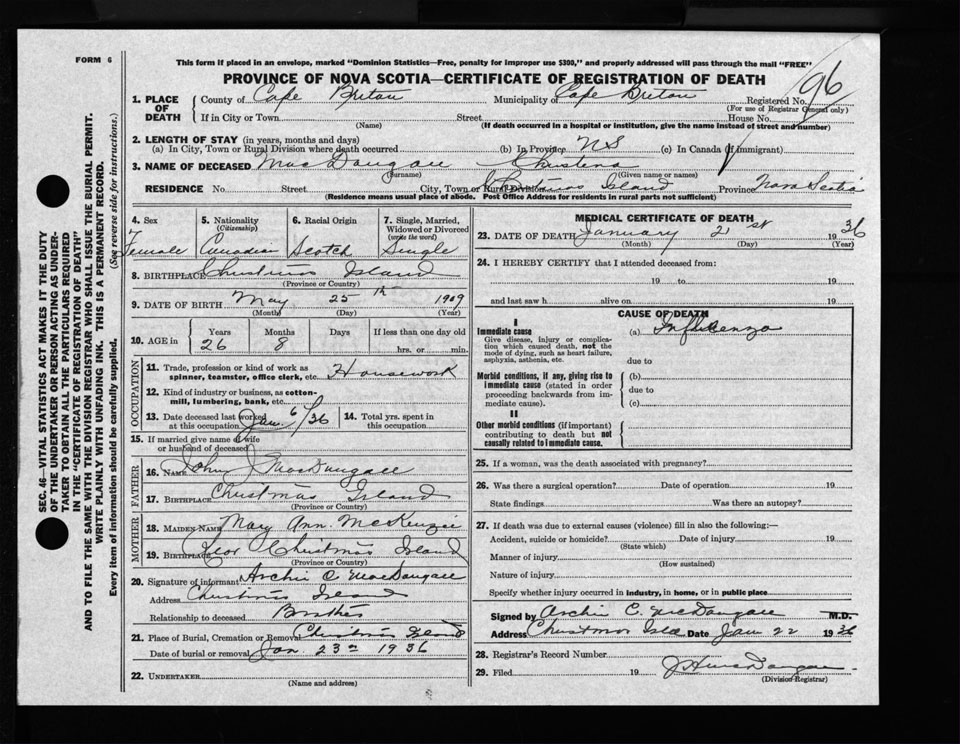 FORM 6
This form if placed in an envelope, marked "Dominion Statistics—Free, penalty for improper use $300," and properly addressed will pass through the mail "FREE"
PROVINCE OF NOVA SCOTIA—CERTIFICATE OF REGISTRATION OF DEATH
96
SEC. 46—VITAL STATISTICS ACT MAKES IT THE DUTY
OF THE UNDERTAKER OR PERSON ACTING AS UNDER-
TAKER TO OBTAIN ALL THE PARTICULARS REQUIRED
IN THE "CERTIFICATE OF REGISTRATION OF DEATH"
AND TO FILE THE SAME WITH THE DIVISION REGISTRAR WHO SHALL ISSUE THE BURIAL PERMIT.
WRITE PLAINLY WITH UNFADING INK. THIS IS A PERMANENT RECORD.
Every item of information should be carefully supplied. (See reverse side for instructions.)
1. PLACE OF DEATH County of Cape Breton Municipality of Cape Breton Registered No.
(For use of Registrar General only)
If in City or Town Street House No.
(Name) (If death occurred in a hospital or institution, give the name instead of street and number)
2. LENGTH OF STAY (in years, months and days)
(a) In City, Town or Rural Division where death occurred (b) In Province NS (c) In Canada (if immigrant)
3. NAME OF DECEASED MacDougall Christena
(Surname) (Given name or names)
RESIDENCE No. Street City, Town or Rural Division Christmas Island Province Nova Scotia
(Residence means usual place of abode. Post Office Address for residents in rural parts not sufficient)
4. Sex 5. Nationality 6. Racial Origin 7. Single, Married,
(Citizenship) Widowed or Divorced
(write the word)
Female Canadian Scotch Single
8. BIRTHPLACE Christmas Island
(Province or Country)
9. DATE OF BIRTH May 25th 1909
(Month) (Day) (Year)
10. AGE in Years Months Days If less than one day old
26 8 hrs. or min.
OCCUPATION
11. Trade, profession or kind of work as
spinner, teamster, office clerk, etc. Housework
12. Kind of industry or business, as cotton-
mill, lumbering, bank, etc.
13. Date deceased last worked at this occupation Jan 6/36 14. Total yrs. spent in this occupation
15. If married give name of wife
or husband of deceased
FATHER
16. NAME John J MacDougall
17. BIRTHPLACE Christmas Island
(Province or Country)
MOTHER
18. MAIDEN NAME Mary Ann McKenzie
19. BIRTHPLACE Christmas Island
(Province or Country)
20. Signature of informant Archie C MacDougall
Address Christmas Island
Relationship to deceased Brother
21. Place of Burial, Cremation or Removal Christmas Island
Date of burial or removal Jan. 23rd 1936
22. UNDERTAKER
(Name and address)
MEDICAL CERTIFICATE OF DEATH
23. DATE OF DEATH January 21st 1936
(Month) (Day) (Year)
24. I HEREBY CERTIFY that I attended deceased from:
19 to 19
and last saw h alive on 19
CAUSE OF DEATH
I
Immediate cause (a) Influenza
Give disease, injury or complica-
tion which caused death, not the
mode of dying, such as heart failure,
asphyxia, asthenia, etc. due to
Morbid conditions, if any, giving rise to (b)
immediate cause (stated in order due to
proceeding backwards from im-
mediate cause). (c)
II
Other morbid conditions (if important)
contributing to death but not
causally related to immediate cause.
25. If a woman, was the death associated with pregnancy?
26. Was there a surgical operation? Date of operation 19
State findings Was there an autopsy?
27. If death was due to external causes (violence) fill in also the following:—
Accident, suicide or homicide? Date of injury 19
(State which)
Manner of injury
(How sustained)
Nature of injury
Specify whether injury occurred in industry, in home, or in public place
Signed by Archie C. McDougall M.D.
Address Christmas Isld Date Jan 22 1936
28. Registrar's Record Number
29. Filed 19
(Division Registrar)